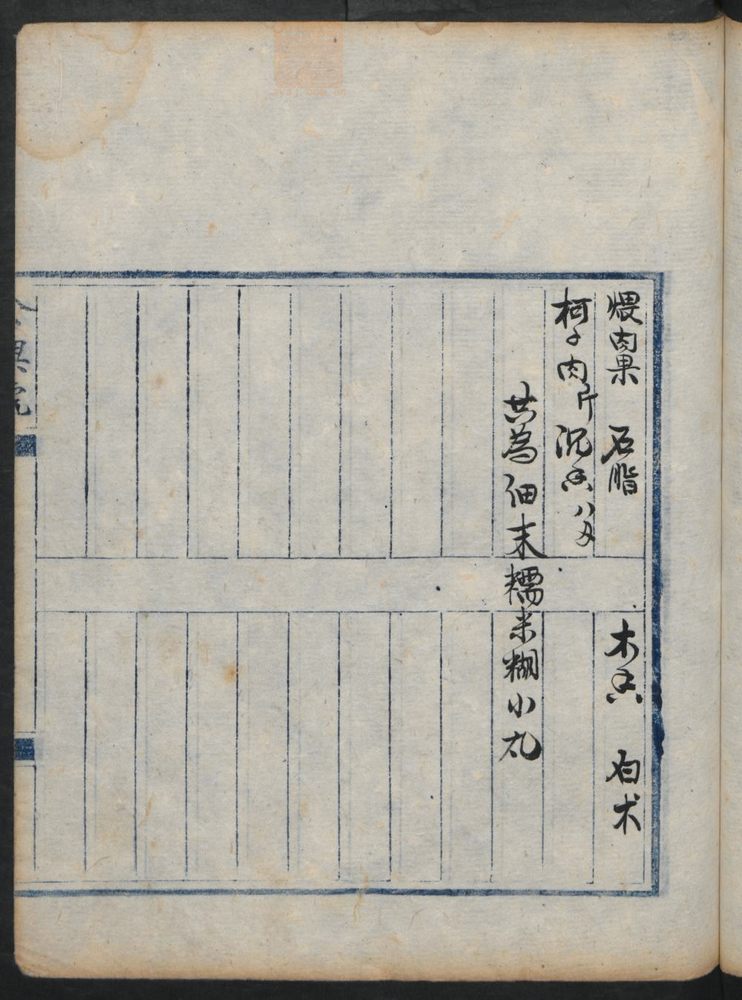 煨肉果 石脂 木香 白术
柯子肉 沉香八分
共為细末糯米糊小丸